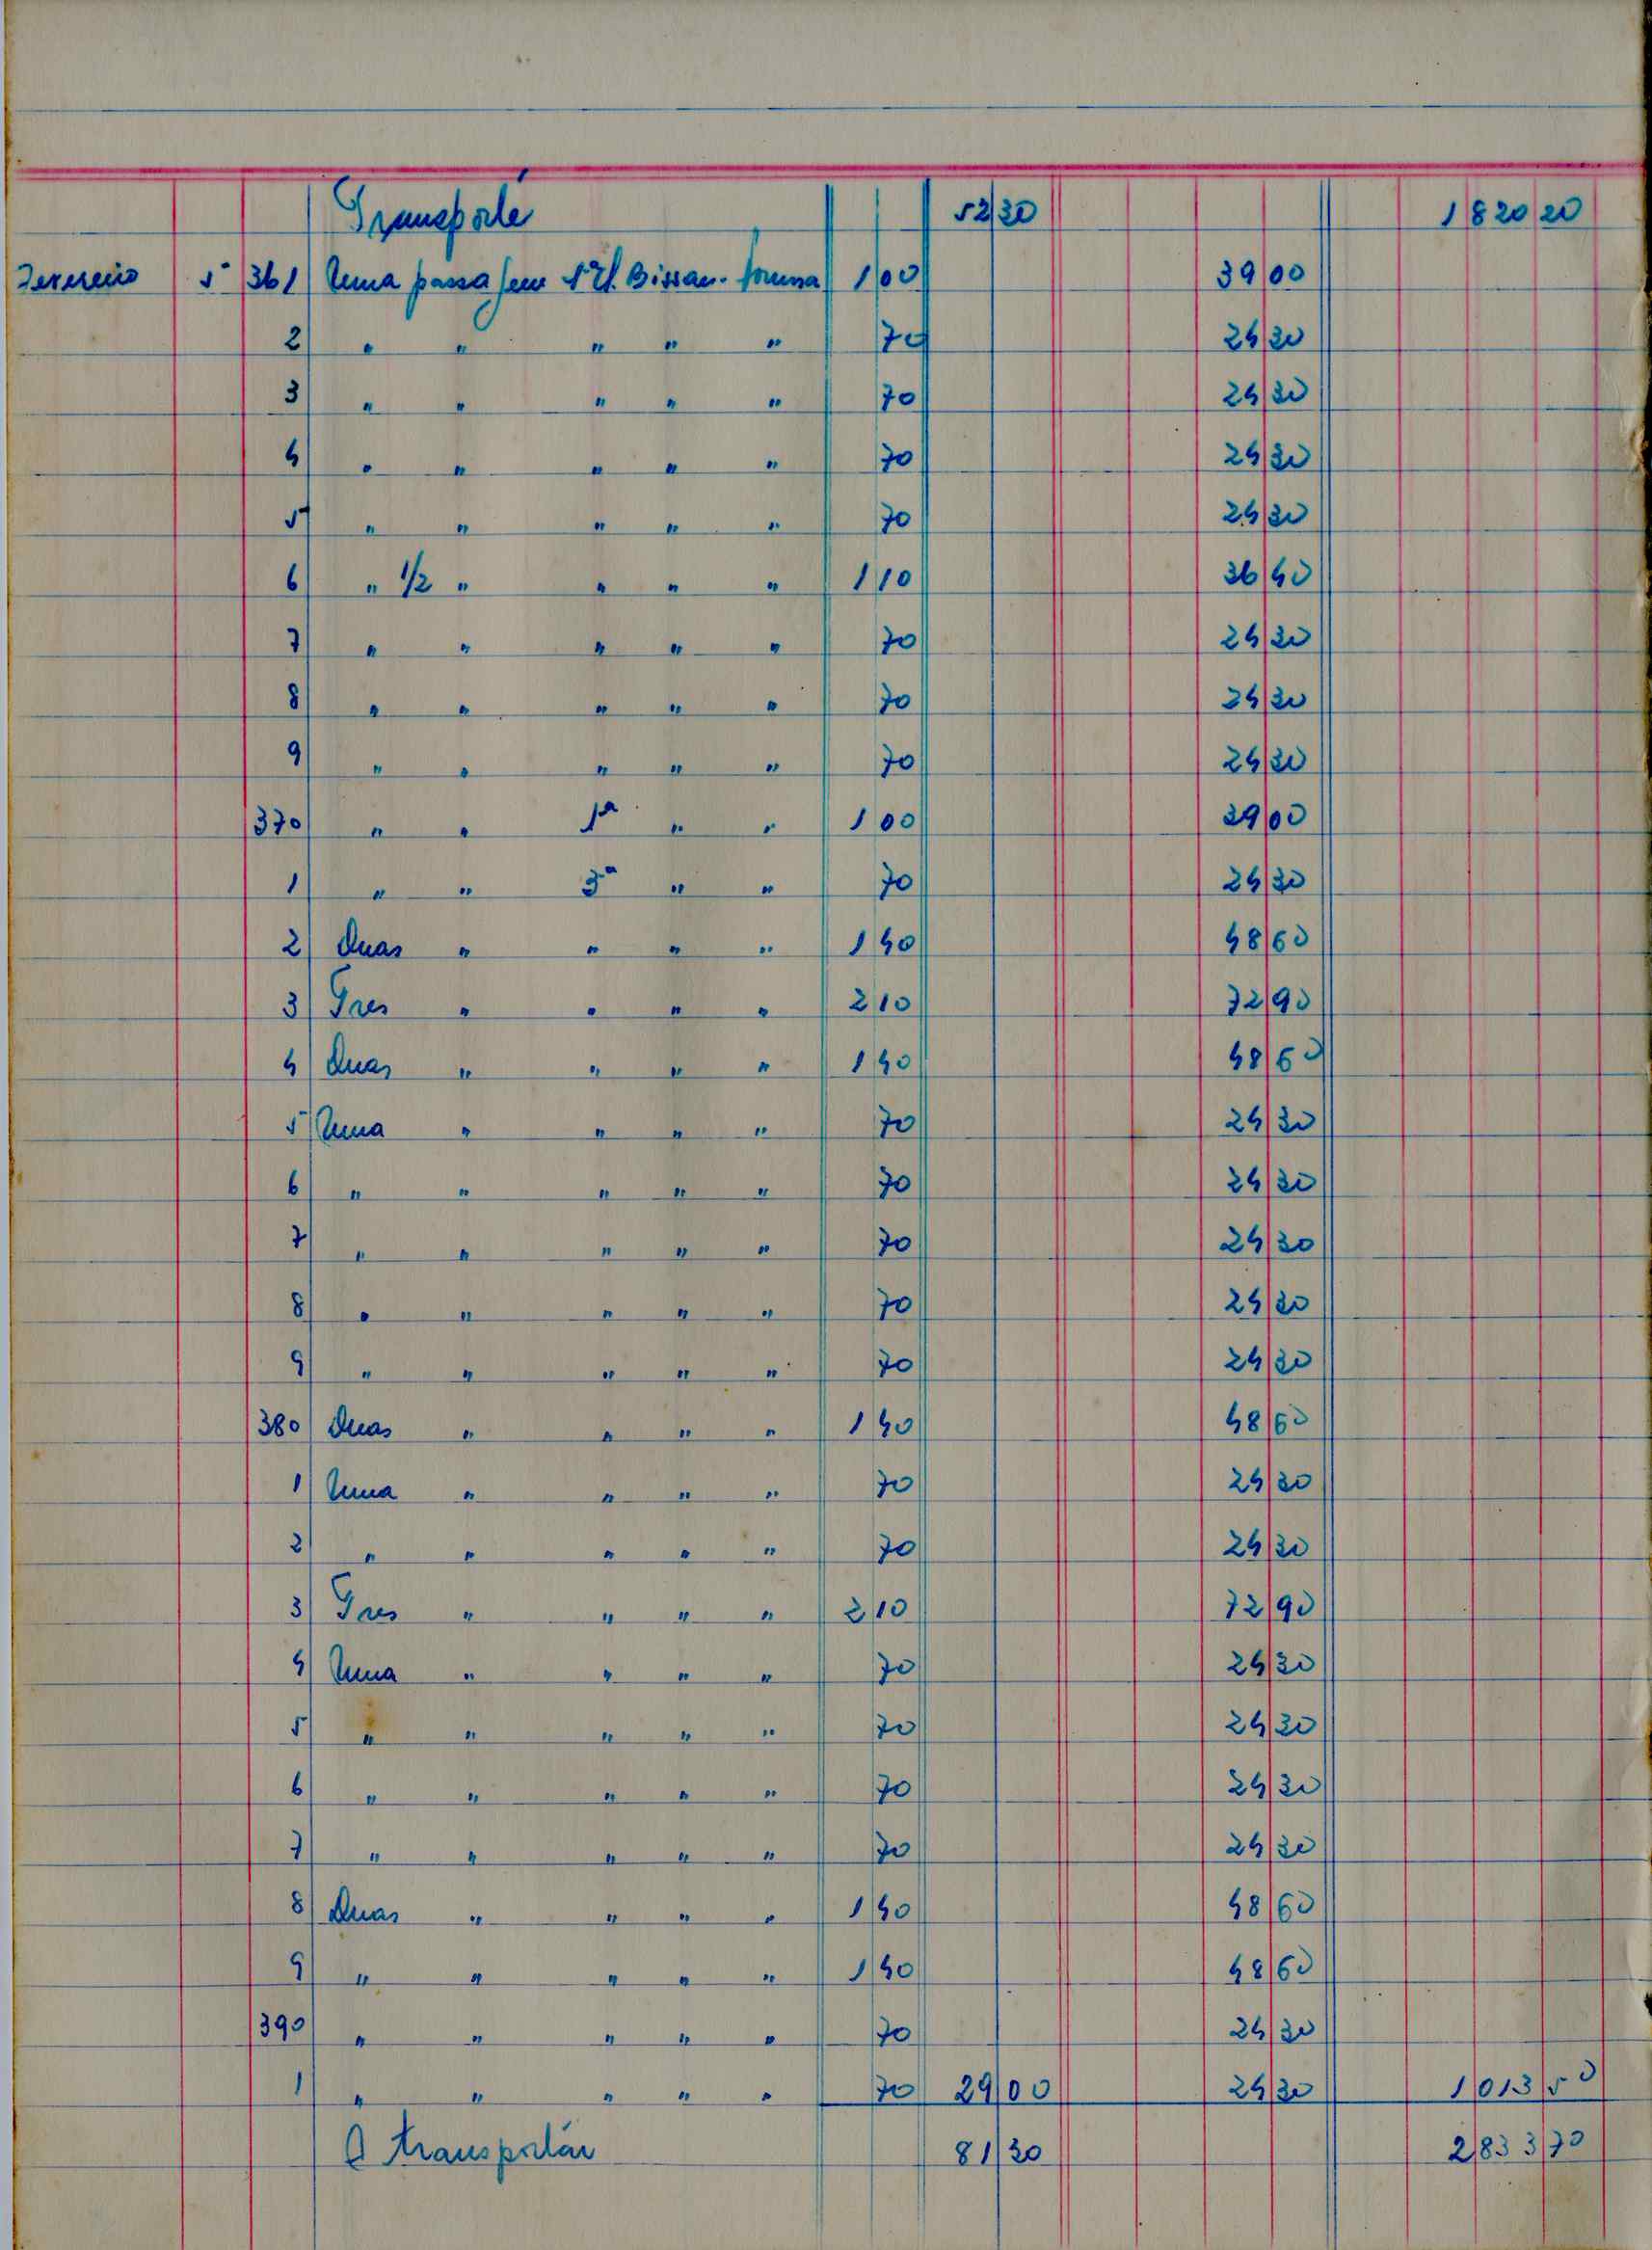 Transporte 52 30 1 820 20
Fevereiro 5 361 Uma passagem 1ª Cl. Bissau- 1 00 39 00
2 " " " " " 70 24 30
3 " " " " " 70 24 30
4 " " " " " 70 24 30
5 " " " " " 70 24 30
6 " 1/2 " " " " 1 10 36 40
7 " " " " " 70 24 30
8 " " " " " 70 24 30
9 " " " " " 70 24 30
370 " " 1ª " " 1 00 39 00
1 " " 3ª " " 70 24 30
2 Duas " " " " 1 40 48 60
3 Tres " " " " 2 10 72 90
4 Duas " " " " 1 40 48 60
5 Uma " " " " 70 24 30
6 " " " " " 70 24 30
7 " " " " " 70 24 30
8 " " " " " 70 24 30
9 " " " " " 70 24 30
380 Duas " " " " 1 40 48 60
1 Uma " " " " 70 24 30
2 " " " " " 70 24 30
3 Tres " " " " 2 10 72 90
4 Uma " " " " 70 24 30
5 " " " " " 70 24 30
6 " " " " " 70 24 30
7 " " " " " 70 24 30
8 Duas " " " " 1 40 48 60
9 " " " " " 1 40 48 60
390 " " " " " 70 24 30
1 " " " " " 70 29 00 24 30 1 013 50
A transportar 81 30 2 833 70